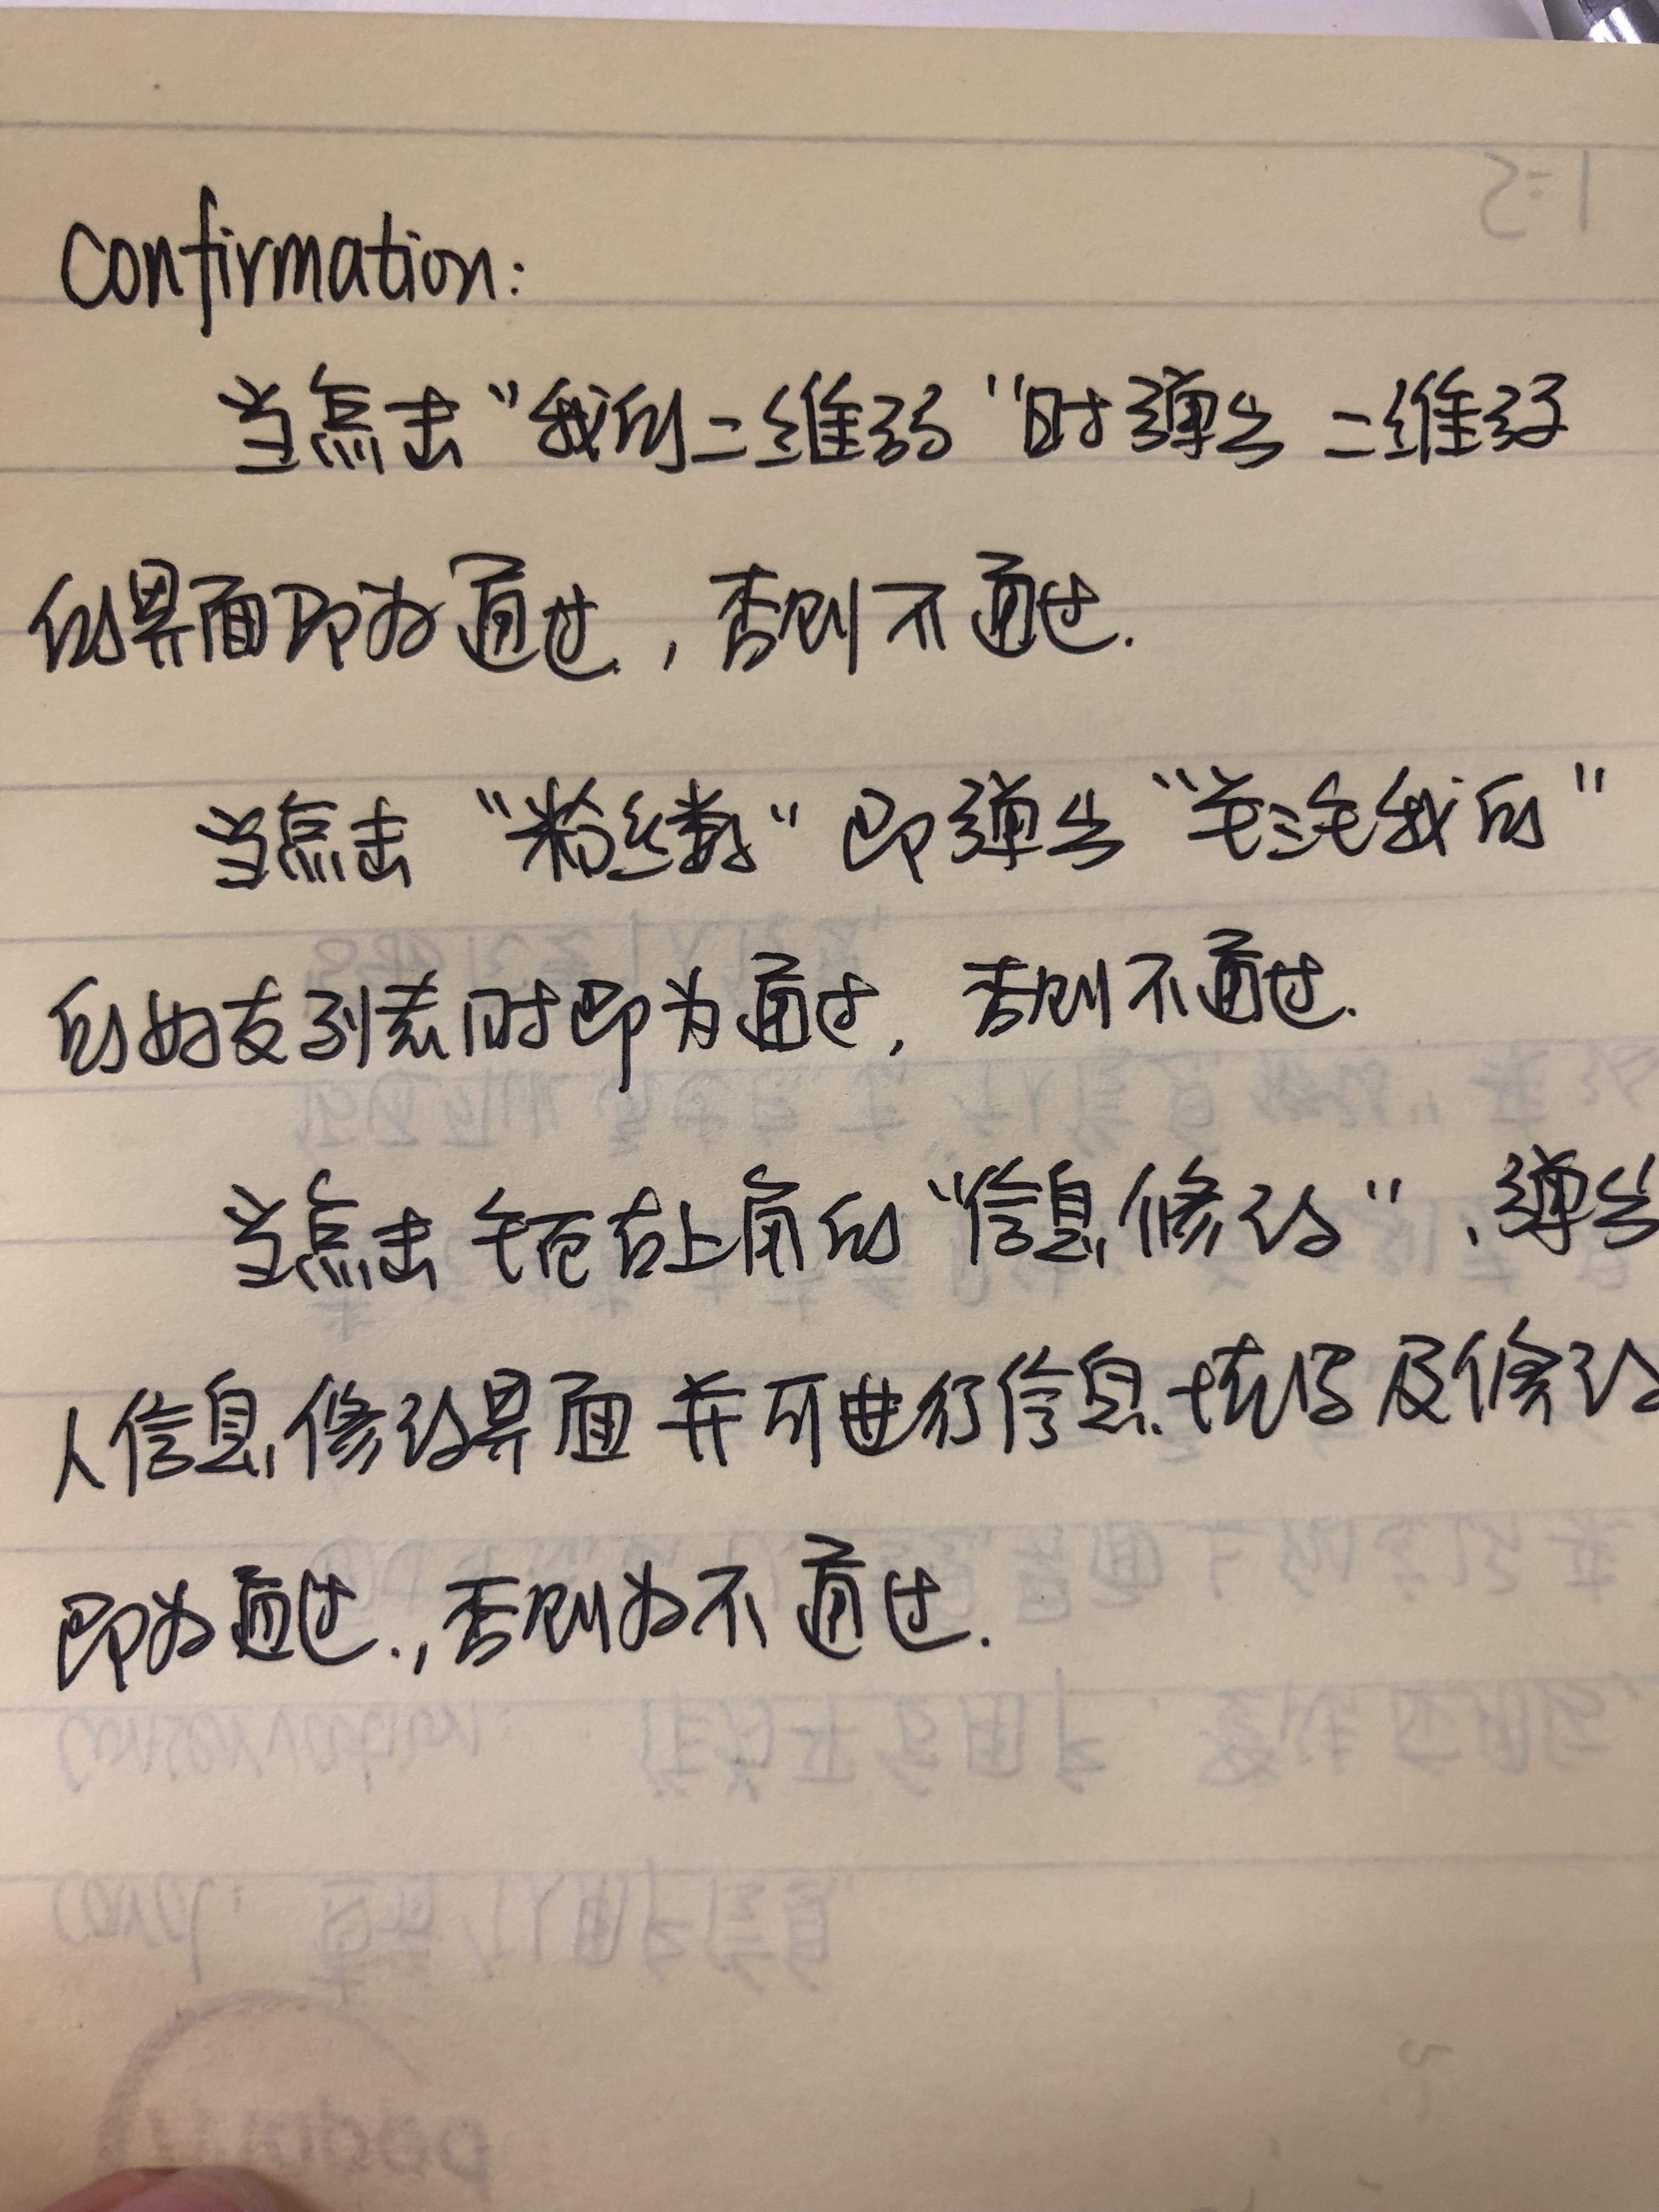 Confirmation:
当点击"我的二维码"时弹出二维码
的界面即为通过,否则不通过.
当点击"粉丝数"即弹出"关注我的"
的好友列表时即为通过,否则不通过.
当点击 右上角的"信息修改"、弹出
人信息修改界面并可进行信息填写及修改
即为通过.,否则为不通过.